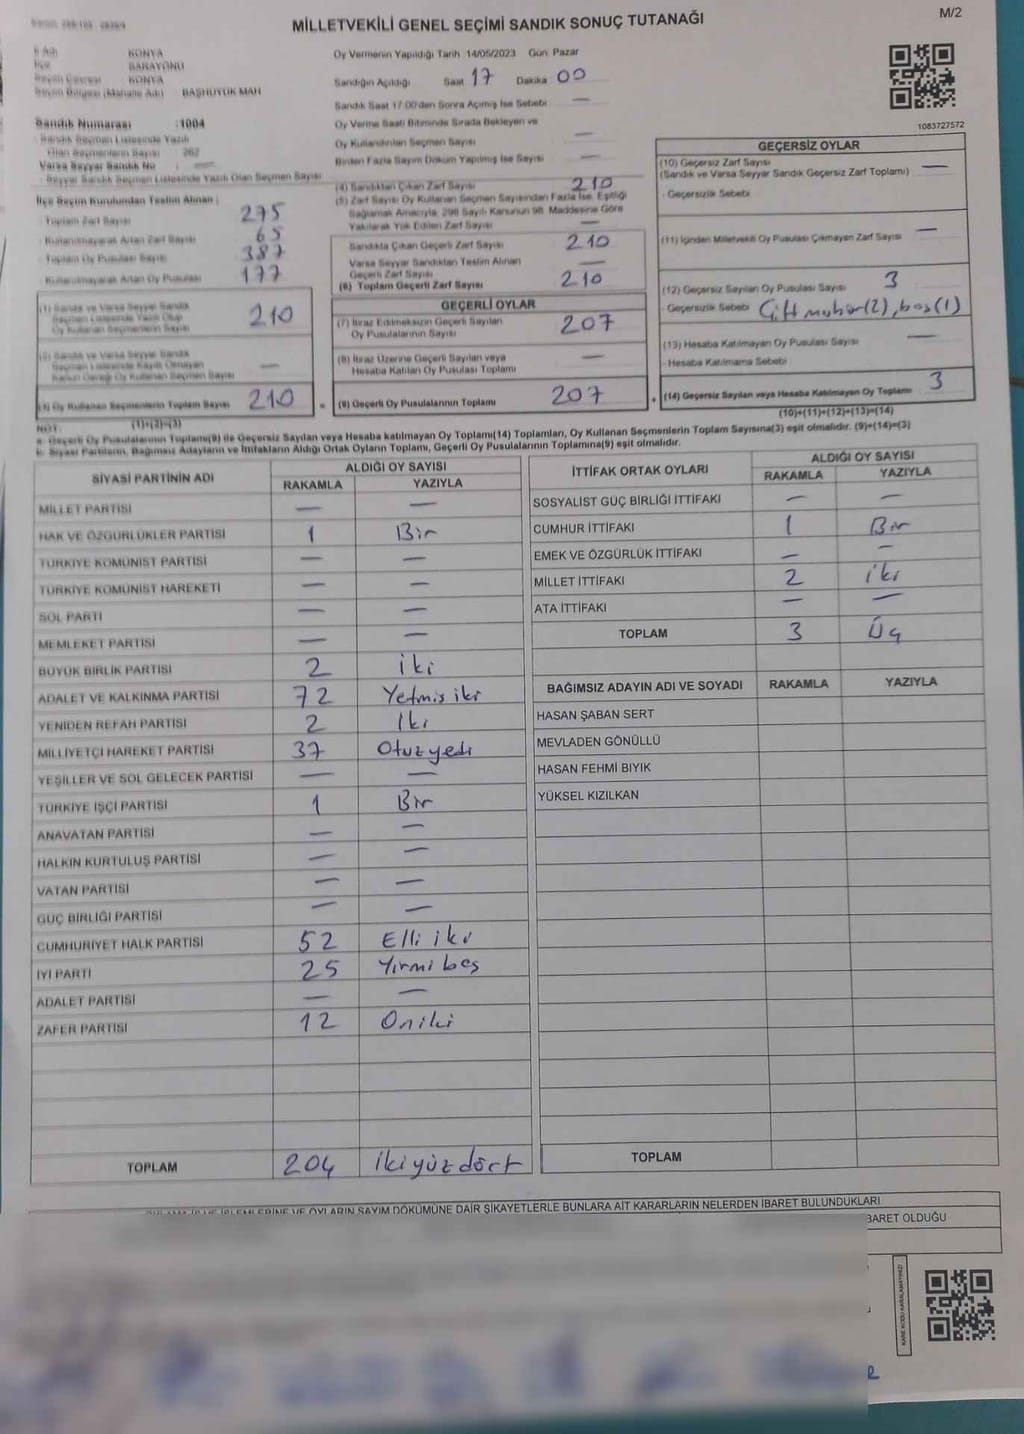 MİLLETVEKİLİ GENEL SEÇİMİ SANDIK SONUÇ TUTANAĞI
M/2
İl Adı KONYA
İlçe SARAYÖNÜ
Seçim Çevresi KONYA
Seçim Bölgesi (Mahalle Adı) BAŞHÜYÜK MAH
Oy Vermenin Yapıldığı Tarih :14/05/2023 Gün: Pazar
Sandığın Açıldığı Saat 17 Dakika 00
Sandık Saat 17:00'den Sonra Açılmış İse Sebebi —
Sandık Numarası :1004
Sandık Seçmen Listesinde Yazılı
Olan Seçmenlerin Sayısı 262
Varsa Seyyar Sandık No —
Seyyar Sandık Seçmen Listesinde Yazılı Olan Seçmen Sayısı
İlçe Seçim Kurulundan Teslim Alınan :
Toplam Zarf Sayısı 275
Kullanılmayarak Artan Zarf Sayısı 65
Toplam Oy Pusulası Sayısı 387
Kullanılmayarak Artan Oy Pusulası 177
(1) Sandık ve Varsa Seyyar Sandık
Seçmen Listesinde Yazılı Olup
Oy Kullanan Seçmenlerin Sayısı 210
(2) Sandık ve Varsa Seyyar Sandık
Seçmen Listesinde Kayıtlı Olmayan
Kanun Gereği Oy Kullanan Seçmen Sayısı —
(3) Oy Kullanan Seçmenlerin Toplam Sayısı 210
(1)+(2)=(3)
Oy Verme Saati Bitiminde Sırada Bekleyen ve
Oy Kullandırılan Seçmen Sayısı —
Birden Fazla Sayım Döküm Yapılmış İse Sayısı —
(4) Sandıktan Çıkan Zarf Sayısı 210
(5) Zarf Sayısı Oy Kullanan Seçmen Sayısından Fazla İse, Eşitliği
Sağlamak Amacıyla, 298 Sayılı Kanunun 98. Maddesine Göre
Yakılarak Yok Edilen Zarf Sayısı
Sandıkta Çıkan Geçerli Zarf Sayısı 210
Varsa Seyyar Sandıktan Teslim Alınan
Geçerli Zarf Sayısı —
(6) Toplam Geçerli Zarf Sayısı 210
GEÇERLİ OYLAR
(7) İtiraz Edilmeksizin Geçerli Sayılan
Oy Pusulalarının Sayısı 207
(8) İtiraz Üzerine Geçerli Sayılan veya
Hesaba Katılan Oy Pusulası Toplamı —
= (9) Geçerli Oy Pusulalarının Toplamı 207
1083727572
GEÇERSİZ OYLAR
(10) Geçersiz Zarf Sayısı —
(Sandık ve Varsa Seyyar Sandık Geçersiz Zarf Toplamı)
- Geçersizlik Sebebi
(11) İçinden Milletvekili Oy Pusulası Çıkmayan Zarf Sayısı —
(12) Geçersiz Sayılan Oy Pusulası Sayısı 3
- Geçersizlik Sebebi Çift mühür(2), boş(1)
(13) Hesaba Katılmayan Oy Pusulası Sayısı —
- Hesaba Katılmama Sebebi
+ (14) Geçersiz Sayılan veya Hesaba Katılmayan Oy Toplamı 3
(10)+(11)+(12)+(13)=(14)
NOT:
a- Geçerli Oy Pusulalarının Toplamı(9) ile Geçersiz Sayılan veya Hesaba katılmayan Oy Toplamı(14) Toplamları, Oy Kullanan Seçmenlerin Toplam Sayısına(3) eşit olmalıdır. (9)+(14)=(3)
b- Siyasi Partilerin, Bağımsız Adayların ve İttifakların Aldığı Ortak Oyların Toplamı, Geçerli Oy Pusulalarının Toplamına(9) eşit olmalıdır.
SİYASİ PARTİNİN ADI ALDIĞI OY SAYISI
RAKAMLA YAZIYLA
MİLLET PARTİSİ — —
HAK VE ÖZGÜRLÜKLER PARTİSİ 1 Bir
TÜRKİYE KOMÜNİST PARTİSİ — —
TÜRKİYE KOMÜNİST HAREKETİ — —
SOL PARTİ — —
MEMLEKET PARTİSİ — —
BÜYÜK BİRLİK PARTİSİ 2 iki
ADALET VE KALKINMA PARTİSİ 72 Yetmiş iki
YENİDEN REFAH PARTİSİ 2 İki
MİLLİYETÇİ HAREKET PARTİSİ 37 Otuz yedi
YEŞİLLER VE SOL GELECEK PARTİSİ — —
TÜRKİYE İŞÇİ PARTİSİ 1 Bir
ANAVATAN PARTİSİ — —
HALKIN KURTULUŞ PARTİSİ — —
VATAN PARTİSİ — —
GÜÇ BİRLİĞİ PARTİSİ — —
CUMHURİYET HALK PARTİSİ 52 Elli iki
İYİ PARTİ 25 Yirmi beş
ADALET PARTİSİ — —
ZAFER PARTİSİ 12 Oniki
TOPLAM 204 İkiyüzdört
İTTİFAK ORTAK OYLARI ALDIĞI OY SAYISI
RAKAMLA YAZIYLA
SOSYALİST GÜÇ BİRLİĞİ İTTİFAKI — —
CUMHUR İTTİFAKI 1 Bir
EMEK VE ÖZGÜRLÜK İTTİFAKI — —
MİLLET İTTİFAKI 2 iki
ATA İTTİFAKI — —
TOPLAM 3 Üç
BAĞIMSIZ ADAYIN ADI VE SOYADI RAKAMLA YAZIYLA
HASAN ŞABAN SERT
MEVLADEN GÖNÜLLÜ
HASAN FEHMİ BIYIK
YÜKSEL KIZILKAN
TOPLAM
OYLARIN SAYIM DÖKÜMÜNE DAİR ŞİKAYETLERLE BUNLARA AİT KARARLARIN NELERDEN İBARET BULUNDUKLARI
BARET OLDUĞU
KARE KODU KARALAMAYINIZ!